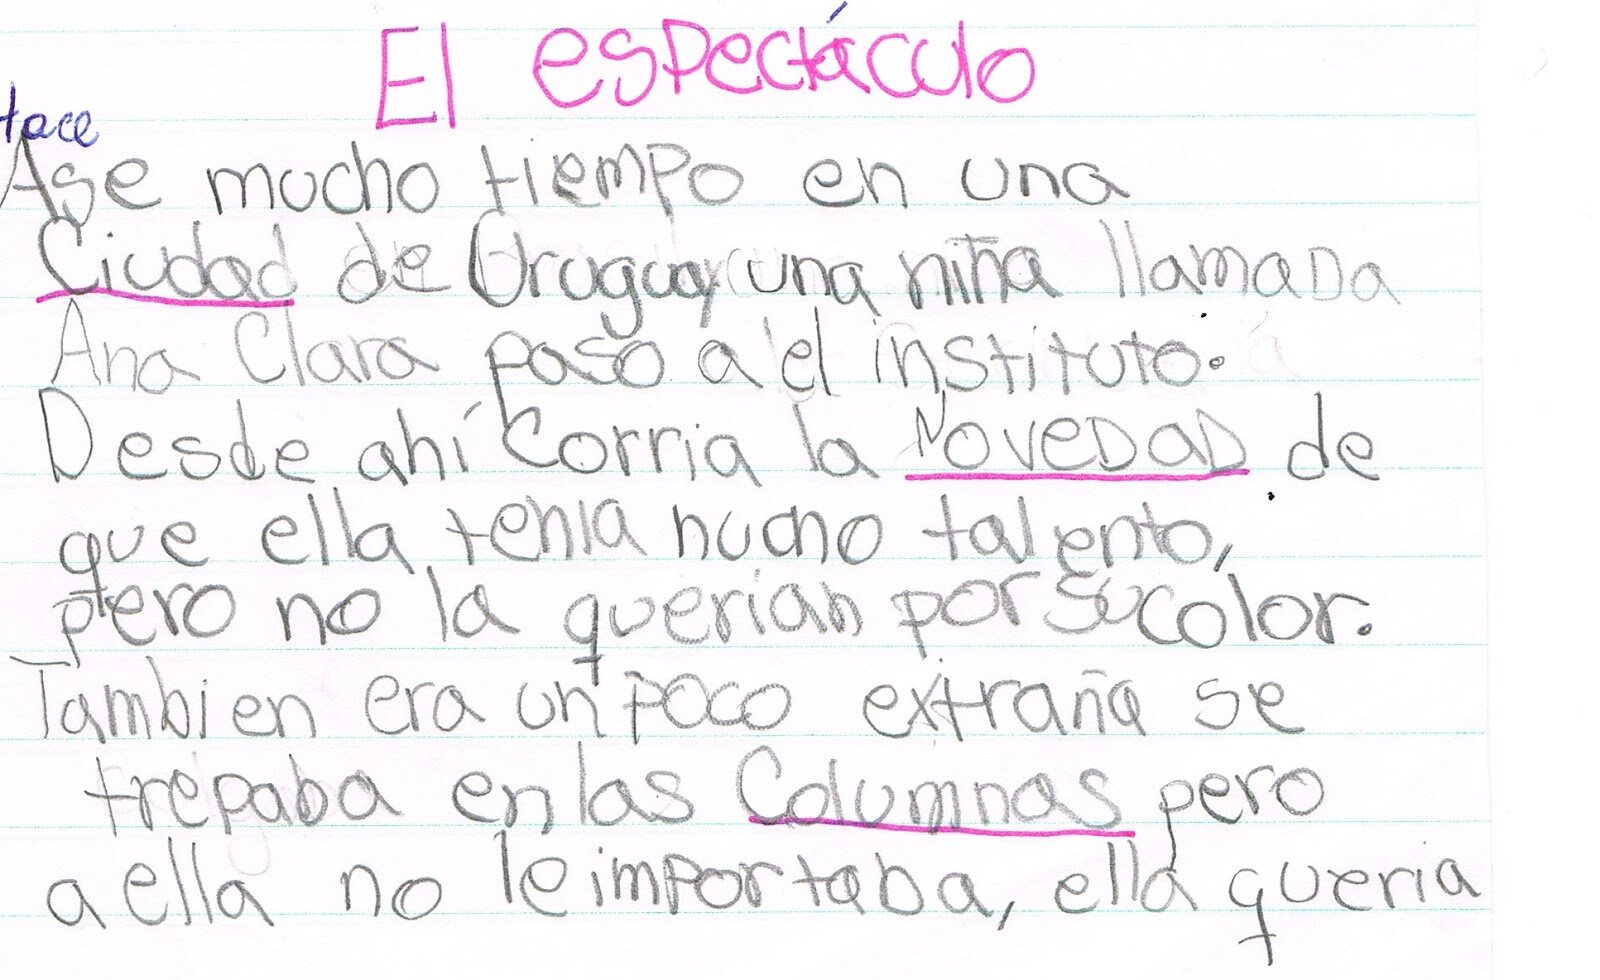 El espectáculo
Hace
Ase mucho tiempo en una
Ciudad de Uruguay una niña llamada
Ana Clara paso a el instituto.
Desde ahí corria la Novedad de
que ella tenia nucho talento,
pero no la querian por su color.
Tambien era un poco extraña se
trepaba en las Columnas pero
a ella no le importaba, ella queria